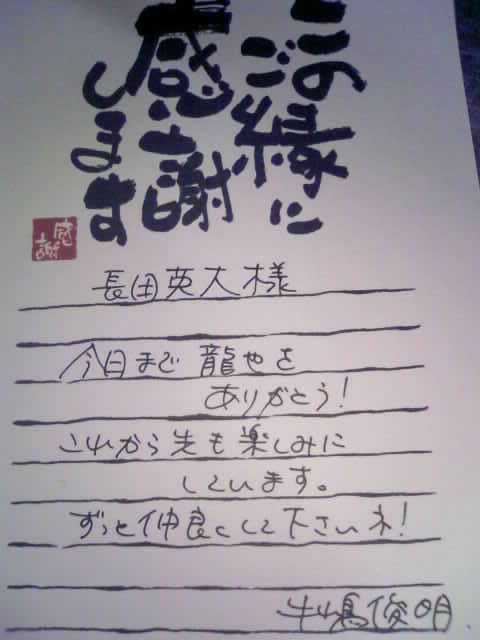 このご縁に
感謝
します
感謝
長田英大様
今日まで 龍也を
ありがとう!
これから先も楽しみに
しています。
ずっと仲良くして下さいネ!
牛嶋俊明